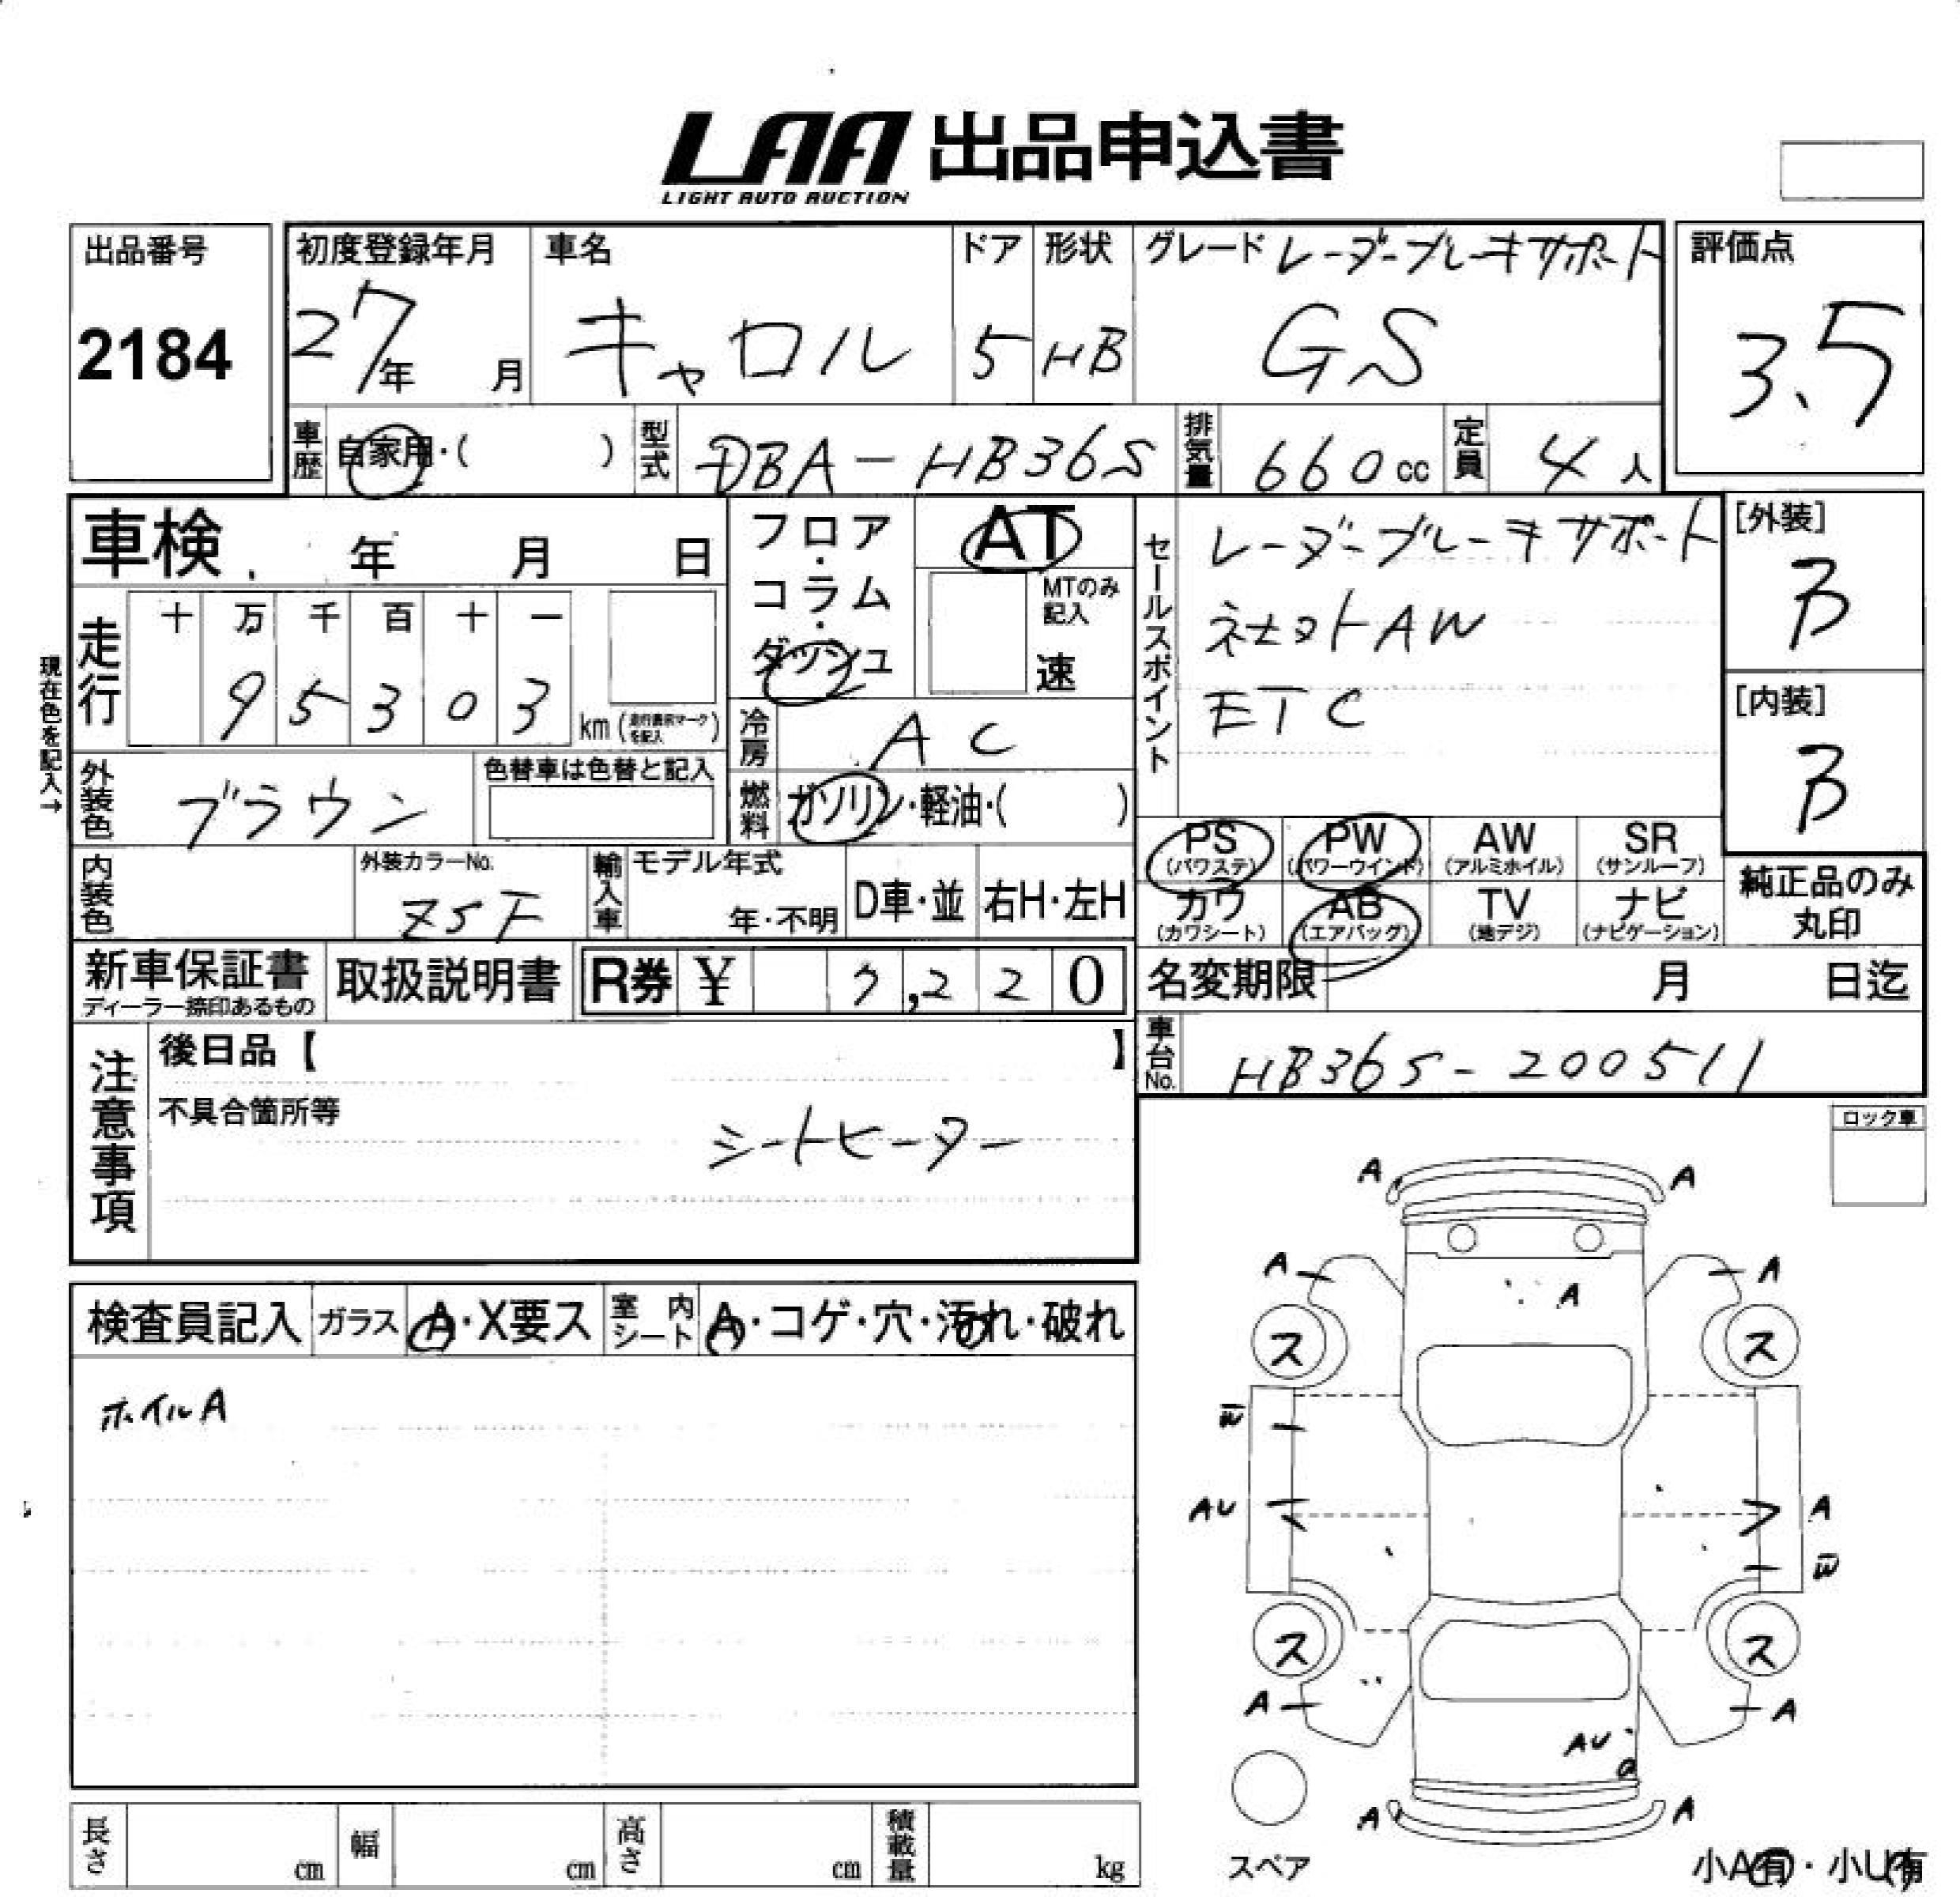 LAA 出品申込書
LIGHT AUTO AUCTION
出品番号
2184
初度登録年月
27年 月
車名
キャロル
ドア
5
形状
HB
グレード レーダーブレーキサポート
GS
評価点
3.5
車歴 自家用・( )
型式 DBA-HB36S
排気量 660cc
定員 4人
車検 年 月 日
フロア・コラム・ダッシュ
AT
MTのみ記入
速
セールスポイント
レーダーブレーキサポート
AW
ETC
[外装]
B
[内装]
B
現在色を記入→
走行
十 万 千 百 十 一
9 5 3 0 3
km (走行表示マークを記入)
冷房 AC
燃料 ガソリン・軽油・( )
外装色 ブラウン
色替車は色替と記入
内装色
外装カラーNo.
Z5F
輸入車
モデル年式
年・不明
D車・並
右H・左H
PS (パワステ)
PW (パワーウインド)
AW (アルミホイル)
SR (サンルーフ)
カワ (カワシート)
AB (エアバッグ)
TV (地デジ)
ナビ (ナビゲーション)
純正品のみ
丸印
新車保証書
ディーラー捺印あるもの
取扱説明書
R券 ¥ 7,220
名変期限 月 日迄
車台No. HB36S-200511
注意事項
後日品【 】
不具合箇所等
シートヒーター
ロック車
検査員記入
ガラス A・X要ス
室内シート A・コゲ・穴・汚れ・破れ
ホイルA
A A
A A
A
ス ス
W
AU A
W
ス ス
A A
AU
A A
スペア
小A有・小U有
長さ cm
幅 cm
高さ cm
積載量 kg